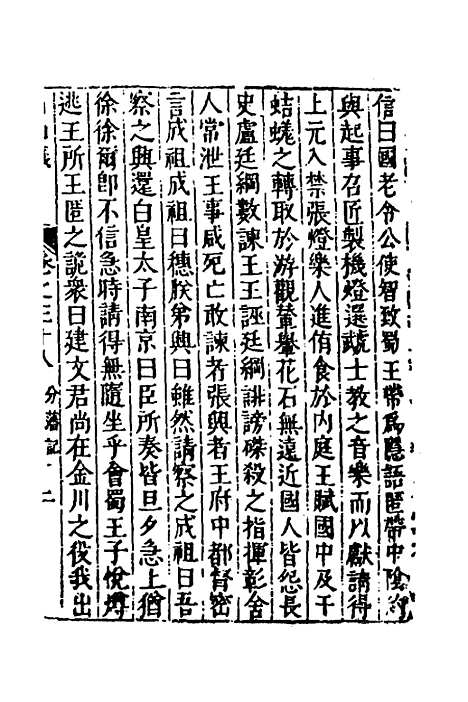 信曰國老令公使智致蜀王帶爲隱語匿帶中陰約
與起事召匠製機燈選壯士教之音樂而以獻請得
上元入禁張燈樂人進侑食於内庭王賦國中及干
蛣蜣之轉取於游觀輦轝花石無遠近國人皆怨長
史盧廷綱數諫王王誣廷綱誹謗磔殺之指揮彰舍
人常泄王事咸死亡敢諫者張興者王府中都督密
言成祖成祖曰穗朕弟興曰雖然請察之成祖曰吾
察之興還白皇太子南京曰臣所奏皆旦夕急上猶
徐徐爾卽不信急時請得無隨坐乎會蜀王子悅燇
逃王所王匿之詭衆曰建文君尚在金川之役我出
名山藏
卷之三十八 分藩記 二